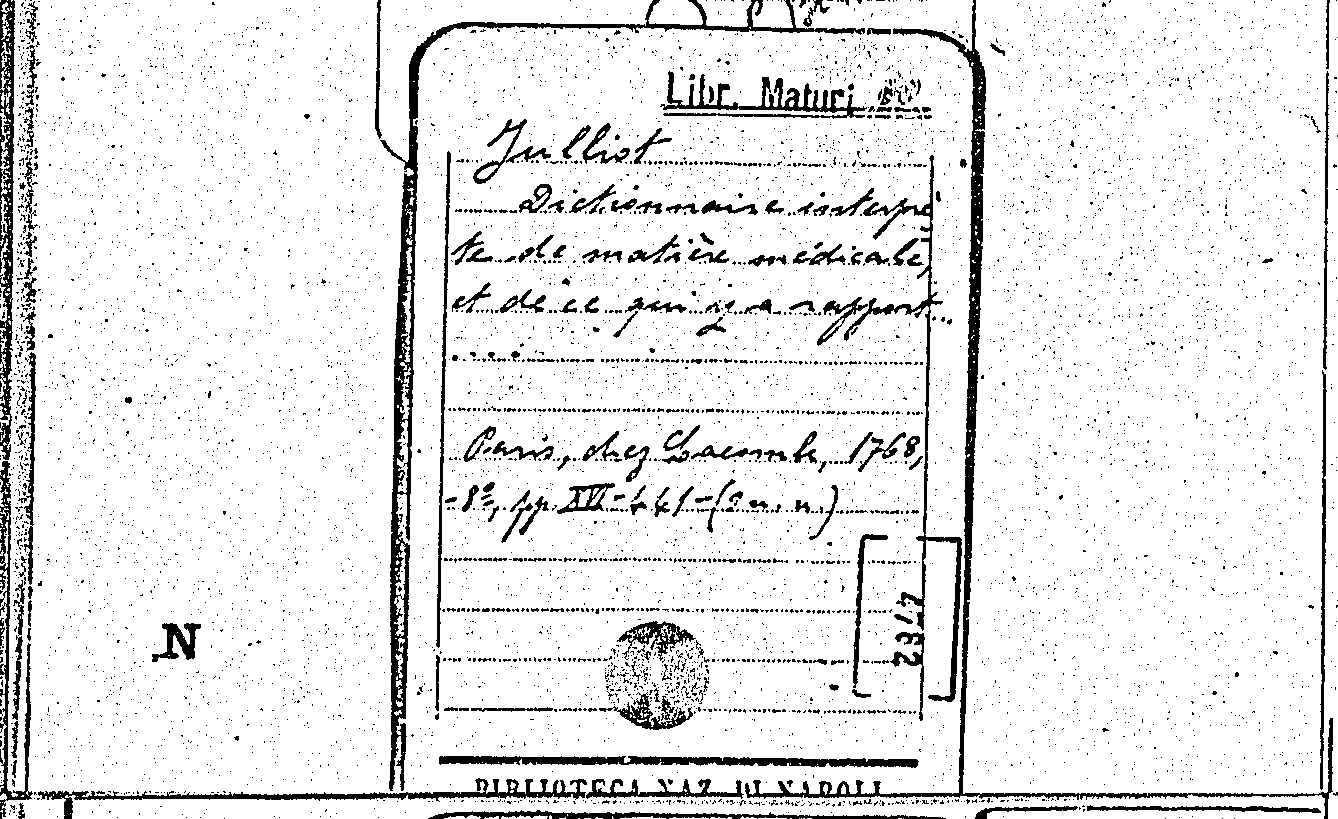 Libr. Maturi
Julliot
Dictionnaire interprè
te de matière médicale,
et de ce qui y a rapport...
....
Paris, chez Lacombe, 1768,
-8º, pp. XVI-441-(3 n. n.)
4762
N
BIBLIOTECA NAZ. DI NAPOLI